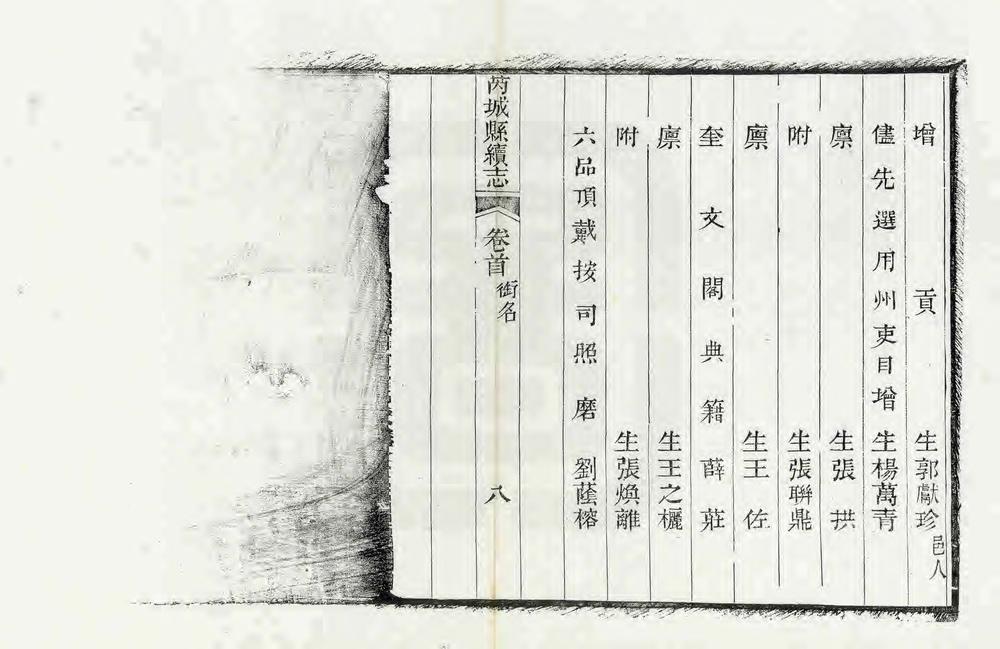 增貢生郭獻珍邑人
儘先選用州吏目增生楊萬青
廪生張拱
附生張聯鼎
廪生王佐
奎文閣典籍薛莊
廪生王之欐
附生張煥離
六品頂戴按司照磨劉蔭榕
芮城縣續志 卷首 銜名 八